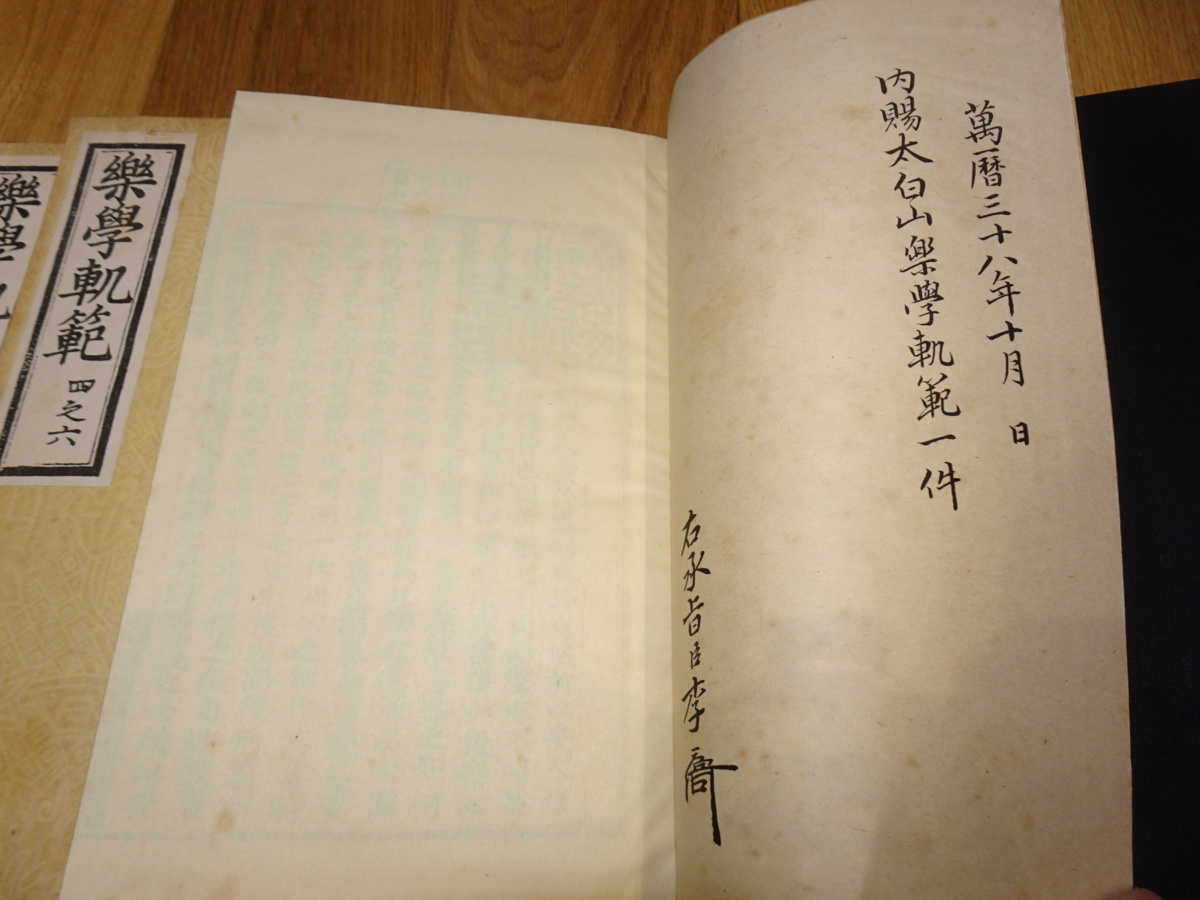 萬曆三十八年十月 日
内賜太白山樂學軌範一件
右承旨臣李
樂學軌範
四之六
樂學